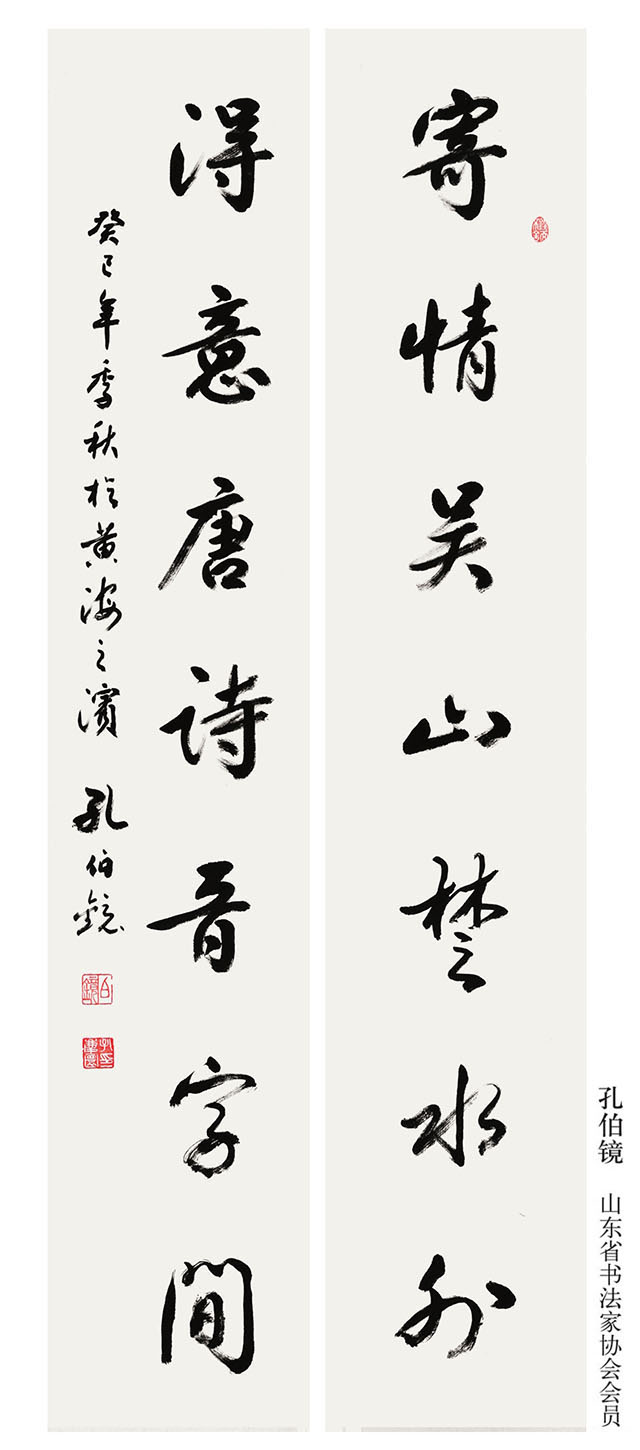 寄情吴山楚水外
得意唐诗晋字間
癸巳年季秋於黄海之濱 孔伯鏡
孔伯镜 山东省书法家协会会员